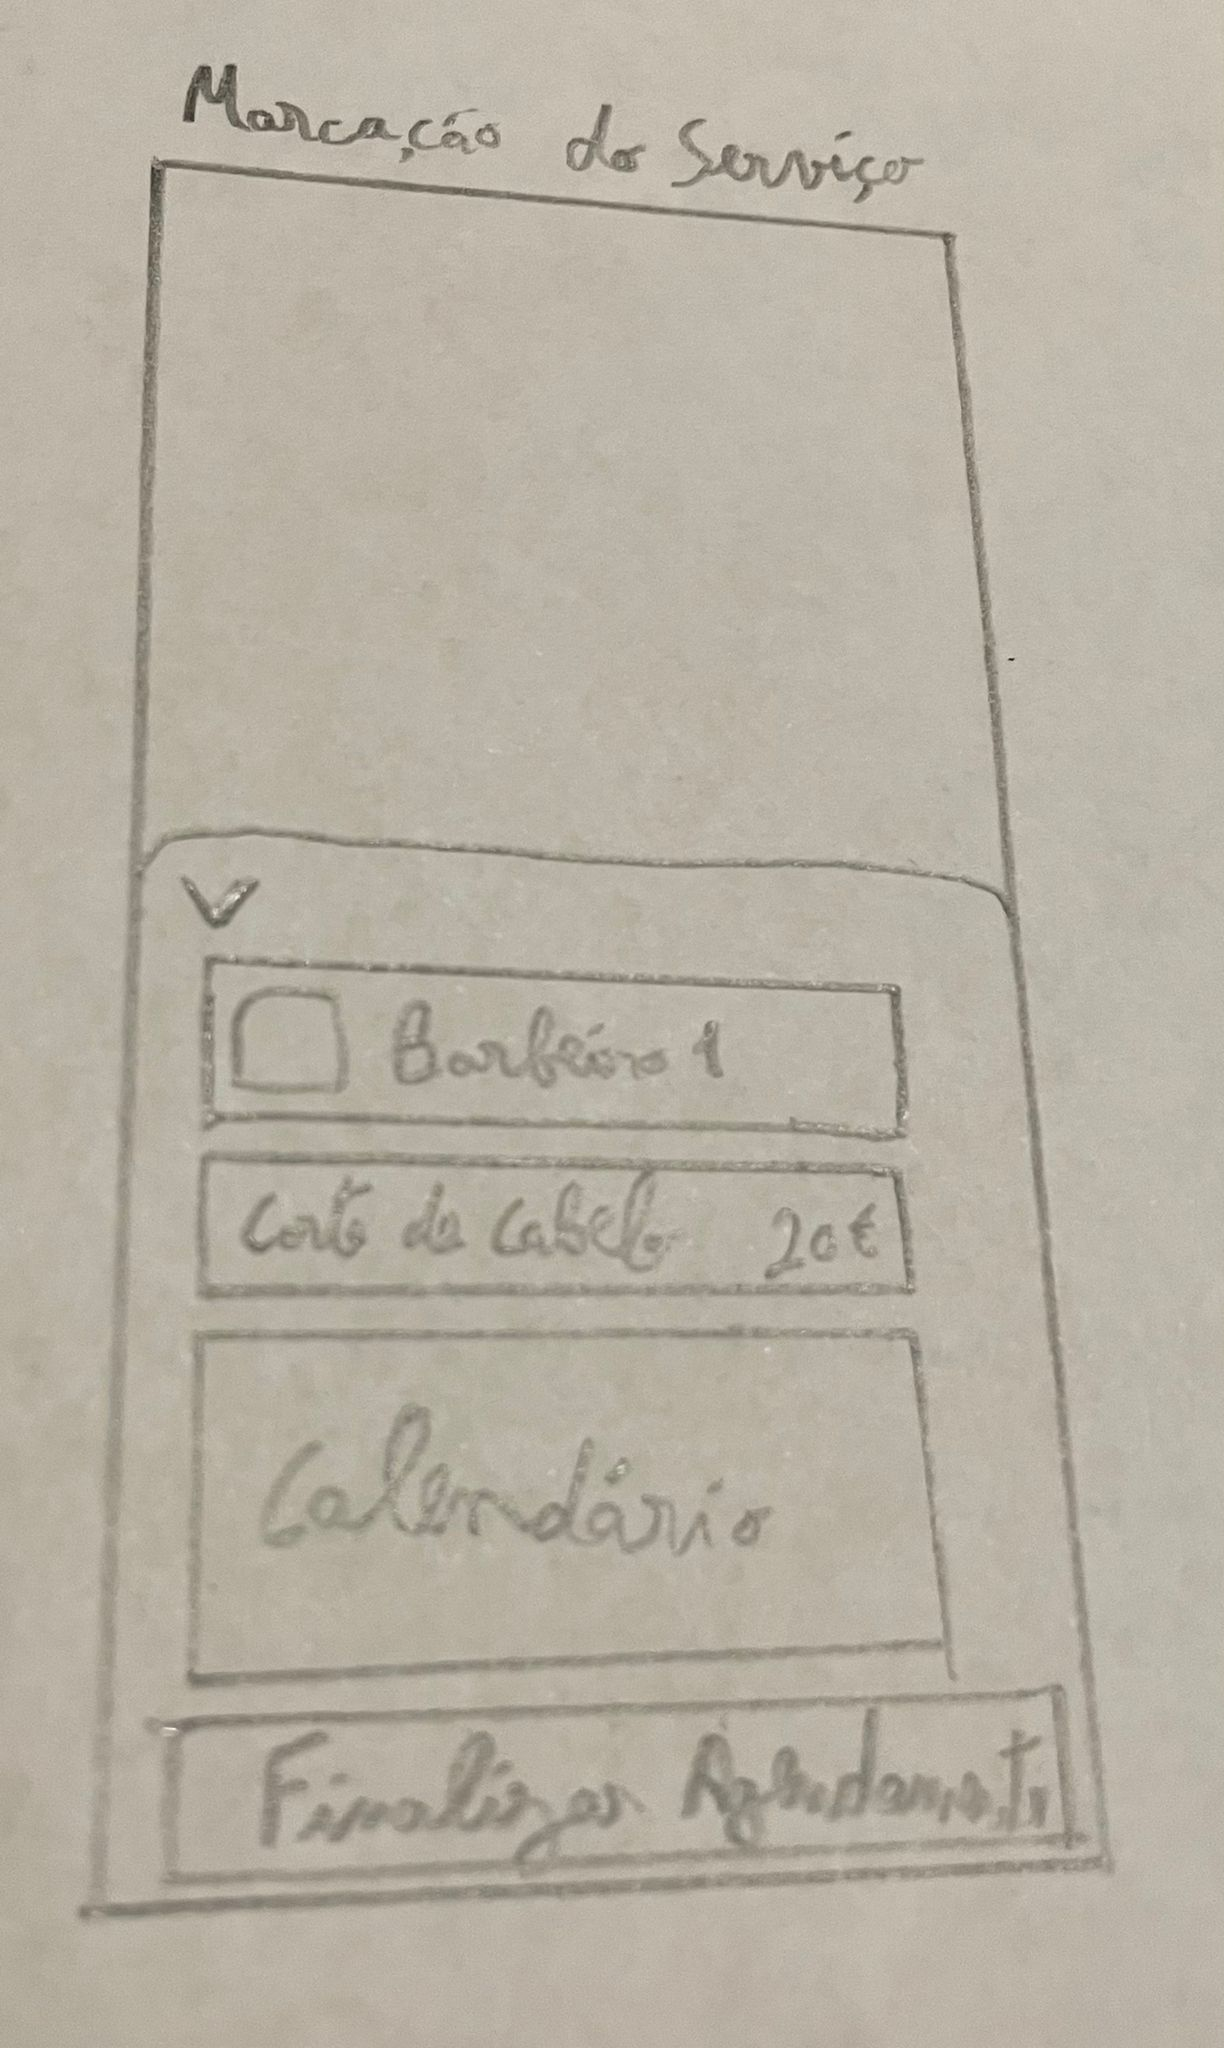 Marcação do Serviço
Barbeiro 1
Corte de Cabelo 20€
Calendário
Finalizar Agendamento